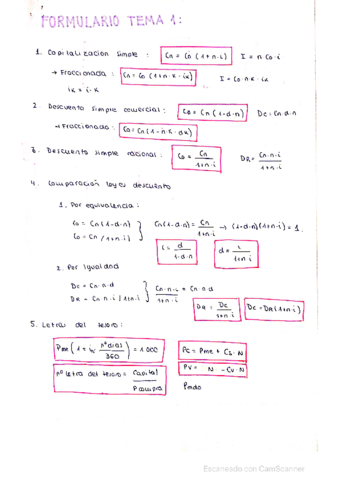 FORMULARIO TEMA 1:
1. Capitalizacion simple : Cn = Co (1+n·i) I = n Co·i
→ Fraccionada : Cn = Co (1+n·k·ik) I = Co·n·k·ik
ik = i·k
2. Descuento simple comercial : Co = Cn (1-d·n) Dc = Cn·d·n
→ Fraccionada : Co = Cn (1-n·k·dk)
3. Descuento simple racional : Co = Cn / 1+n·i DR = Cn·n·i / 1+n·i
4. Comparación leyes descuento
1. Por equivalencia :
Co = Cn (1-d·n) } Cn (1-d·n) = Cn / 1+n·i → (1-d·n)(1+n·i) = 1.
Co = Cn / 1+n·i
i = d / 1-d·n d = i / 1+n·i
2. Por igualdad
Dc = Cn·n·d } Cn·n·i / 1+n·i = Cn·n·d
DR = Cn·n·i / 1+n·i
DR = Dc / 1+n·i Dc = DR (1+n·i)
5. Letras del tesoro :
Pme ( 1 + i · nº dias / 360 ) = 1000 Pc = Pme + Cs · N
nº letra del tesoro = Capital / P compra Pv = N - Cv · N
Pmdo
Escaneado con CamScanner